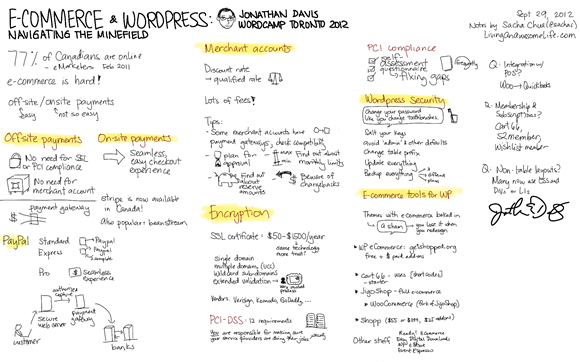 E-COMMERCE & WORDPRESS:
NAVIGATING THE MINEFIELD
JONATHAN DAVIS
WORDCAMP TORONTO 2012
Sept 29, 2012
Notes by Sacha Chua (@sachac)
LivingAnAwesomeLife.com
77% of Canadians are online
- eMarketers Feb 2011
e-commerce is hard!
off-site/onsite payments
easy
not so easy
Offsite payments
No need for SSL
or PCI compliance
No need for
merchant account
payment gateway
On-site payments
Seamless,
easy checkout
experience
stripe is now available
in Canada!
Also popular: beanstream
PayPal
Standard
Express
Pro
Paypal
Paypal
complete
Seamless
experience
authorize
capture
secure
web server
payment
gateway
customer
banks
Merchant accounts
Discount rate
→ qualified rate
Lots of fees!
Tips:
- Some merchant accounts have
payment gateways, check compatibility
- plan for
approval
- Find out about
monthly limits
- Find out
about
reserve
amounts
- Beware of
chargebacks
Encryption
SSL certificate: $50-$1500/year
same technology
more trust!
Single domain
multiple domains (UCC)
Wildcard subdomains
Extended validation
Vendors: Verisign, Komodo, GoDaddy...
PCI-DSS: 12 requirements
You are responsible for making sure
your service providers are doing their jobs
PCI compliance
self-
assessment
questionnaire
→ fixing gaps
frequently
Wordpress Security
Change your password
like you change toothbrushes.
Salt your keys
Avoid 'admin' & other defaults
Change table prefix
Update everything
Backup everything
E-commerce tools for WP
Themes with e-commerce baked in
a sham
you lose it when
you redesign
WP eCommerce: getshopped.org
free + $ paid addons
Cart 66 - uses [shortcodes]
- starter
JigoShop - full ecommerce
WooCommerce (fork of JigoShop)
Shopp
Other stuff
Ready! Ecommerce
Easy Digital Downloads
WP eStore
Event Espresso
Q: Integration w/
POS?
Woo→Quickbooks
Q: Membership &
Subscriptions?
Cart 66,
S2member,
Wishlist member
Q: Non-table layouts?
Many now use tables and
DIVs or LIs